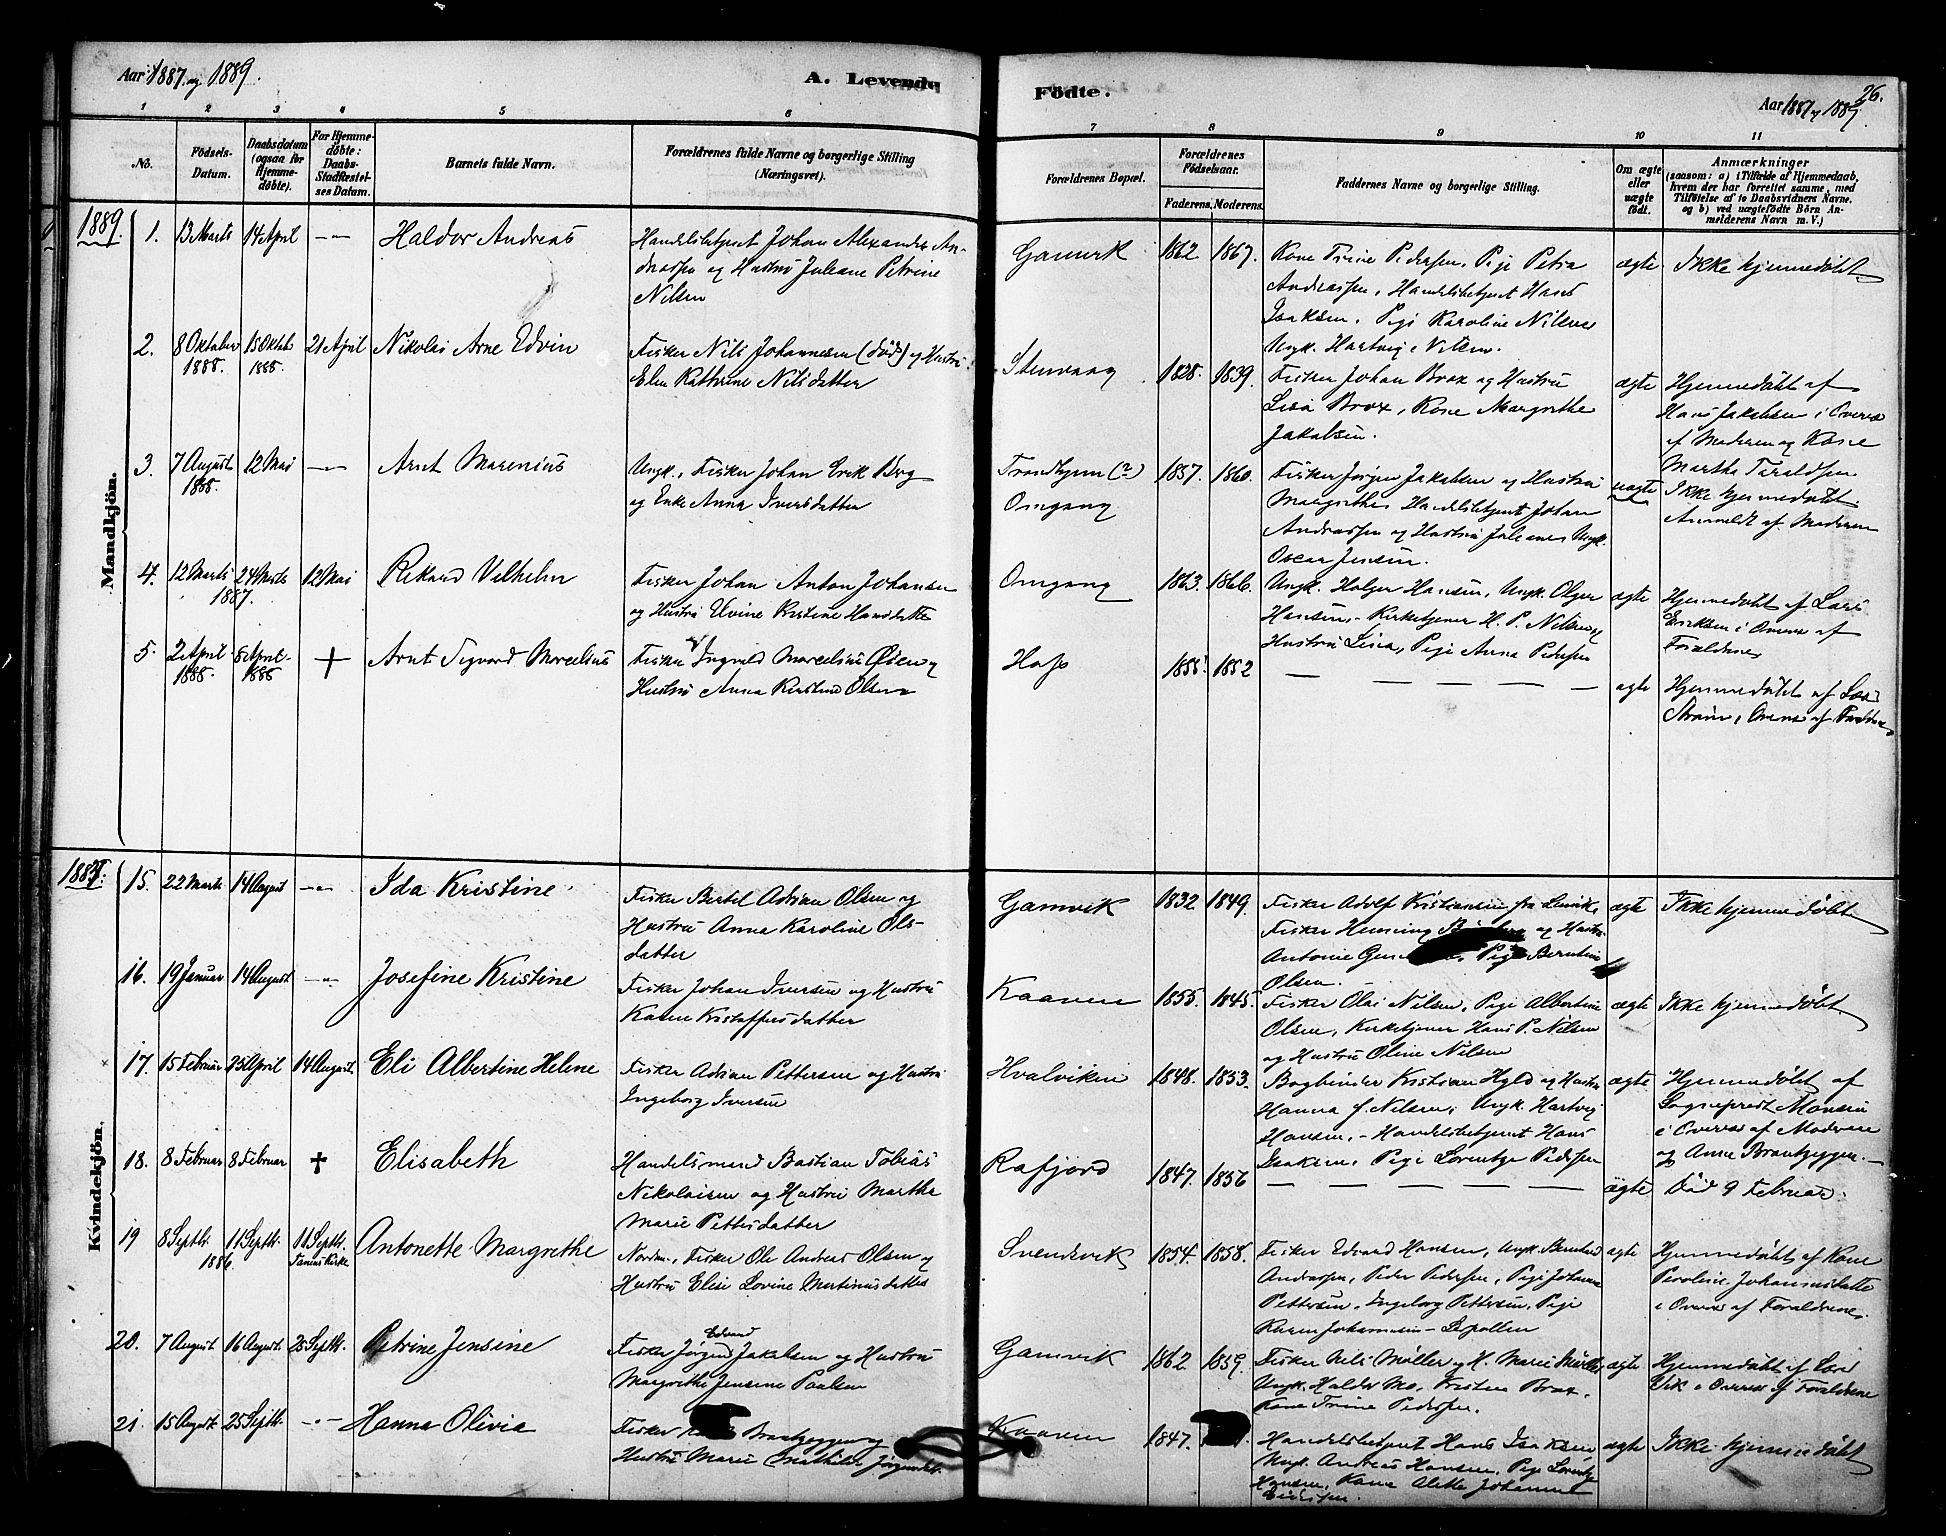 Aar 1887 og 1889.
A. Levende
Födte.
Aar 1887 og 1889.
26.
1 2 3 4 5 6 7 8 9 10 11
No.
Födsels-Datum.
Daabsdatum (ogsaa for Hjemme-døbte).
For Hjemme-døbte: Daabs-Stadfæstel-ses Datum.
Barnets fulde Navn.
Forældrenes fulde Navne og borgerlige Stilling (Næringsvei).
Forældrenes Bopæl.
Forældrenes Födselsaar.
Faderens. Moderens.
Faddernes Navne og borgerlige Stilling.
Om ægte eller uægte født.
Anmærkninger
(saasom: a) i Tilfælde af Hjemmedaab,
hvem der har forrettet samme, med
Tilføielse af to Daabsvidners Navne.
og b) ved uægtefödte Börn An-
melderens Navn m. V.)
Mandkjön.
1889
1. 13 Marts 14 April -"- Haldor Andreas
Handelsbetjent Johan Alexander An-
dreassen og Hustru Juliane Petrine
Nilsen
Gamvik 1862 1867.
Kone Trine Pedersen, Pige Petra
Andreassen, Handelsbetjent Hans
Isaksen, Pige Karoline Nilsen
Ungk. Hartvig Nilsen.
ægte Ikke hjemmedøbt
2. 8 Oktober 1888. 15 Oktob 1888. 21 April Nikolai Arne Edvin
Fisker Nils Johannesen (død) og Hustru
Elen Kathrine Nilsdatter
Stenvaag 1828. 1839.
Fisker Johan Brox og Hustru
Lisa Brox, Kone Margrethe
Jakobsen.
ægte Hjemmedøbt af
Hans Jakobsen i Overvær
af Moderen og Kone
Martha Taraldsen
3. 7 August 1888. 12 Mai -"- Arnt Marenius
Ungk. Fisker Johan Erik Berg
og Enke Anna Iversdatter
Trondhjem (?) 1857. 1860.
Omgang
Fisker Jørgen Jakobsen og Hustru
Margrethe, Handelsbetjent Johan
Andreassen og Hustru Juliane, Ungk.
Oscar Jensen.
uægte Ikke hjemmedøbt
Anmeldt af Moderen
4. 12 Marts 24 Marts 1887. 12 Mai Rikard Vilhelm
Fisker Johan Anton Johansen
og Hustru Evine Kristine Hansdatter
Omgang 1863. 1866.
Ungk. Holger Hansen, Ungk. Olger
Hansen, Kirketjener H. P. Nilsen og
Hustru Lisa, Pige Anna Pedersen
ægte Hjemmedøbt af Lars
Eriksen i Overvær af
Forældrene
5. 2 April 1888. 8 April 1888 + Arnt Sigvard Marcelius
Fisker Ingvald Marcelius Øien og
Hustru Anna Kirstine Olsen
Hop 1855 1852
— — — — —
ægte Hjemmedøbt af
Strøm i Overvær af Forældrene
Kvindekjön.
1887:
15. 22 Marts 14 August -"- Ida Kristine
Fisker Bertel Adrian Olsen og
Hustru Anna Karoline Ols-
datter
Gamvik 1832 1849.
Fisker Adolf Kristiansen fra
Fisker Henning og Hustru
Antonie Pige Berntine
Olsen.
ægte Ikke hjemmedøbt
16. 19 Januar 14 August -"- Josefine Kristine
Fisker Johan Iversen og Hustru
Karen Kristoffersdatter
Kaaven 1855 1845.
Fisker Olai Nilsen, Pige Albertine
Olsen, Kirketjener Hans P. Nilsen
og Hustru Oline Nilsen
ægte Ikke hjemmedøbt
17. 15 Februar 25 April 14 August Eli Albertine Helene
Fisker Adrian Pettersen og Hustru
Ingeborg Iversen
Hvalviken 1848. 1853.
Bogbinder Kristian Hyld og Hustru
Hanna f. Nilsen, Ungk. Hartvig
Hansen, Handelsbetjent Hans
Isaksen, Pige Lorentze Pedersen
ægte Hjemmedøbt af
Sognepræst
i Overvær af Moderen
og Anne Brantzeggen.
18. 8 Februar 8 Februar + Elisabeth
Handelsmand Bastian Tobias
Nikolaisen og Hustru Martha
Marie Pettersdatter
Rafjord 1847. 1856
— — — — —
ägte Død 9 Februar.
19 8 Septbr. 1886 11 Septbr. 11 Septbr. Tanens Kirke Antonette Margrethe
Nordm., Fisker Ole Andreas Olsen og
Hustru Elise Lovine Martinusdatter
Svendsvik 1854. 1858.
Fisker Edvard Hansen, Ungk. Bernhard
Andreassen, Peder Pedersen, Pige Johanne
Pettersen, Ingeborg Pettersen, Pige
Karen Johannesen –
ægte Hjemmedøbt af Kone
Peroline Johannesdatter
i Overvær af Forældrene
20. 7 August 16 August 25 Septbr. Petrine Jensine
Edvard
Fisker Jørgen Jakobsen og Hustru
Margrethe Jensine Paulsen
Gamvik 1862. 1859.
Fisker Nils Møller og H. Marie Møller,
Ungk. Haldor Mo, Kristen Brox,
Kone Trine Pedersen.
ægte Hjemmedøbt af
Vik i Overvær af Forældrene
21. 15 August 25 Septbr. -"- Hanna Olivia
Fisker Brantzeggen og
Hustru Marie Mathilde Jørgensdt.
Kaaven 1847.
Handelsbetjent Hans Isaksen
Ungk. Andreas Hansen, Pige Lorentze
Hansen, Kone Alette Johanne
ægte Ikke hjemmedøbt